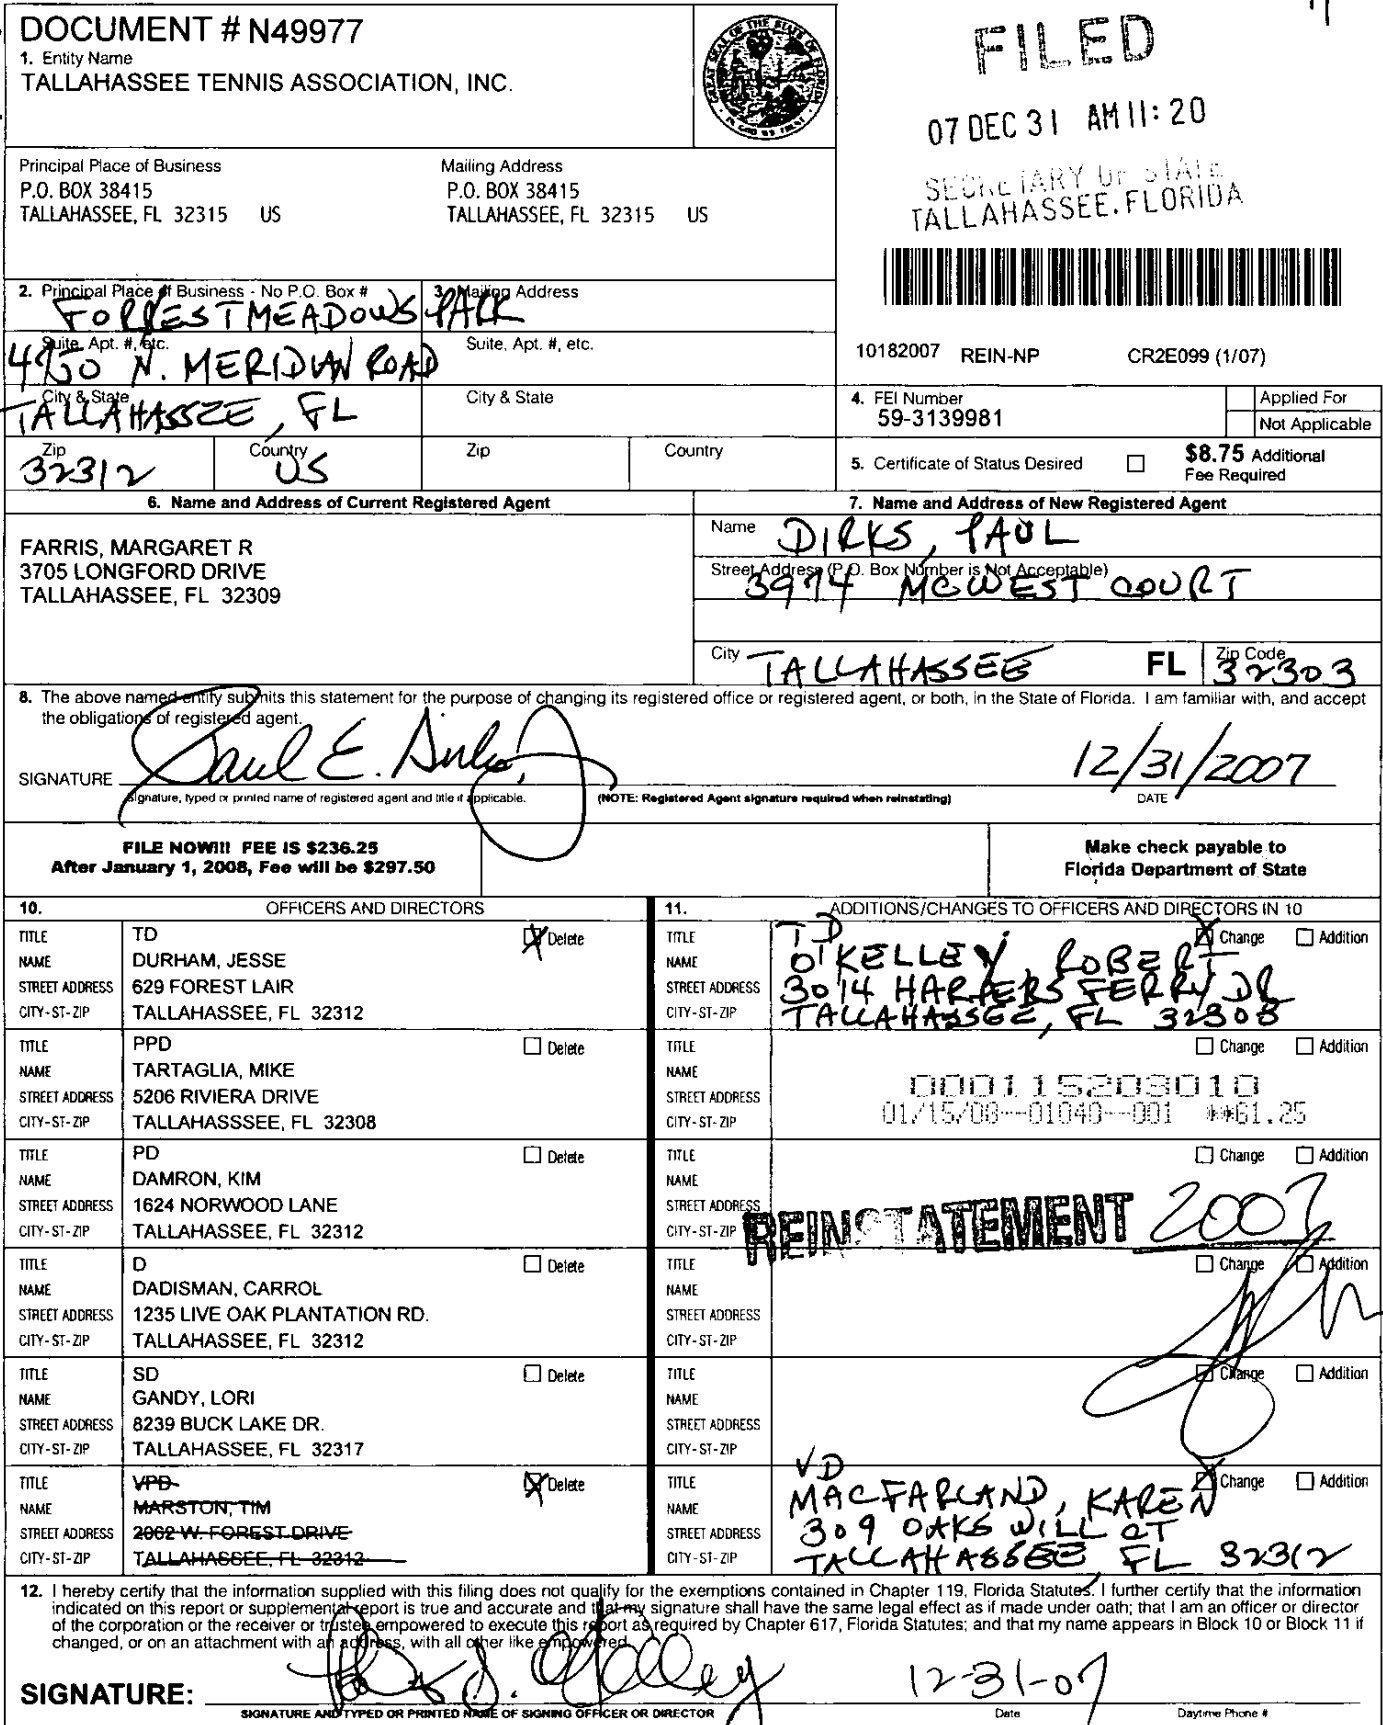 DOCUMENT # N49977
1. Entity Name
TALLAHASSEE TENNIS ASSOCIATION, INC.
GREAT SEAL OF THE STATE OF FLORIDA
IN GOD WE TRUST
FILED
07 DEC 31 AM 11: 20
SECRETARY OF STATE
TALLAHASSEE, FLORIDA
Principal Place of Business
P.O. BOX 38415
TALLAHASSEE, FL 32315 US
Mailing Address
P.O. BOX 38415
TALLAHASSEE, FL 32315 US
2. Principal Place of Business - No P.O. Box #
FORREST MEADOWS PARK
3. Mailing Address
Suite, Apt. #, etc.
4750 N. MERIDIAN ROAD
Suite, Apt. #, etc.
City & State
TALLAHASSEE, FL
City & State
Zip
32312
Country
US
Zip
Country
10182007 REIN-NP CR2E099 (1/07)
4. FEI Number
59-3139981
Applied For
Not Applicable
5. Certificate of Status Desired
$8.75 Additional
Fee Required
6. Name and Address of Current Registered Agent
FARRIS, MARGARET R
3705 LONGFORD DRIVE
TALLAHASSEE, FL 32309
7. Name and Address of New Registered Agent
Name DIRKS, PAUL
Street Address (P.O. Box Number is Not Acceptable)
3974 MCWEST COURT
City TALLAHASSEE FL Zip Code 32303
8. The above named entity submits this statement for the purpose of changing its registered office or registered agent, or both, in the State of Florida. I am familiar with, and accept
the obligations of registered agent.
SIGNATURE Paul E. Dirks, 12/31/2007
Signature, typed or printed name of registered agent and title if applicable. (NOTE: Registered Agent signature required when reinstating) DATE
FILE NOW!!! FEE IS $236.25
After January 1, 2008, Fee will be $297.50
Make check payable to
Florida Department of State
10. OFFICERS AND DIRECTORS
TITLE TD Delete
NAME DURHAM, JESSE
STREET ADDRESS 629 FOREST LAIR
CITY-ST-ZIP TALLAHASSEE, FL 32312
TITLE PPD Delete
NAME TARTAGLIA, MIKE
STREET ADDRESS 5206 RIVIERA DRIVE
CITY-ST-ZIP TALLAHASSSEE, FL 32308
TITLE PD Delete
NAME DAMRON, KIM
STREET ADDRESS 1624 NORWOOD LANE
CITY-ST-ZIP TALLAHASSEE, FL 32312
TITLE D Delete
NAME DADISMAN, CARROL
STREET ADDRESS 1235 LIVE OAK PLANTATION RD.
CITY-ST-ZIP TALLAHASSEE, FL 32312
TITLE SD Delete
NAME GANDY, LORI
STREET ADDRESS 8239 BUCK LAKE DR.
CITY-ST-ZIP TALLAHASSEE, FL 32317
TITLE VPD Delete
NAME MARSTON, TIM
STREET ADDRESS 2062 W. FOREST DRIVE
CITY-ST-ZIP TALLAHASSEE, FL 32312
11. ADDITIONS/CHANGES TO OFFICERS AND DIRECTORS IN 10
TITLE TD Change Addition
NAME O'KELLEY, ROBERT
STREET ADDRESS 3014 HARPERS FERRY DR
CITY-ST-ZIP TALLAHASSEE, FL 32308
TITLE Change Addition
NAME
STREET ADDRESS 000115203010
CITY-ST-ZIP 01/15/08--01040--001 **61.25
TITLE Change Addition
NAME
STREET ADDRESS
CITY-ST-ZIP REINSTATEMENT 2007
TITLE Change Addition
NAME
STREET ADDRESS
CITY-ST-ZIP
TITLE Change Addition
NAME
STREET ADDRESS
CITY-ST-ZIP
TITLE VD Change Addition
NAME MACFARLAND, KAREN
STREET ADDRESS 309 OAKS WILL CT
CITY-ST-ZIP TALLAHASSEE, FL 32312
12. I hereby certify that the information supplied with this filing does not qualify for the exemptions contained in Chapter 119, Florida Statutes. I further certify that the information
indicated on this report or supplemental report is true and accurate and that my signature shall have the same legal effect as if made under oath; that I am an officer or director
of the corporation or the receiver or trustee empowered to execute this report as required by Chapter 617, Florida Statutes; and that my name appears in Block 10 or Block 11 if
changed, or on an attachment with an address, with all other like empowered.
SIGNATURE: 12-31-07
SIGNATURE AND TYPED OR PRINTED NAME OF SIGNING OFFICER OR DIRECTOR Date Daytime Phone #